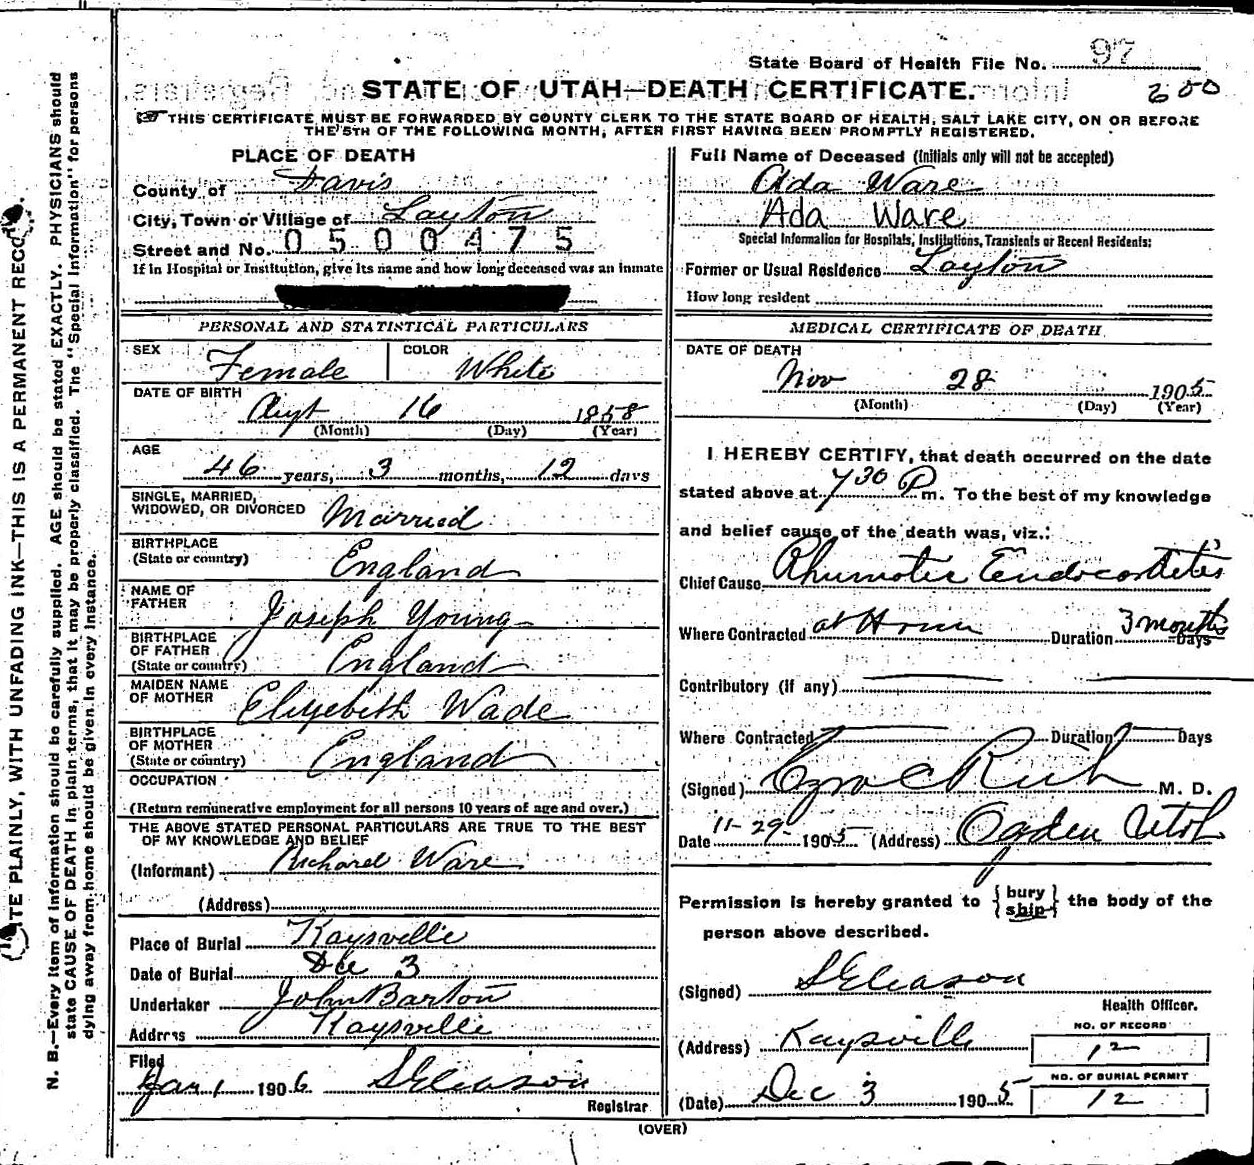 State Board of Health File No. 97
STATE OF UTAH—DEATH CERTIFICATE.
200
THIS CERTIFICATE MUST BE FORWARDED BY COUNTY CLERK TO THE STATE BOARD OF HEALTH, SALT LAKE CITY, ON OR BEFORE
THE 5TH OF THE FOLLOWING MONTH, AFTER FIRST HAVING BEEN PROMPTLY REGISTERED.
PLACE OF DEATH
County of Davis
City, Town or Village of Layton
Street and No. 0500475
If in Hospital or Institution, give its name and how long deceased was an inmate
Full Name of Deceased (Initials only will not be accepted)
Ada Ware
Ada Ware
Special Information for Hospitals, Institutions, Transients or Recent Residents:
Former or Usual Residence Layton
How long resident
PERSONAL AND STATISTICAL PARTICULARS
SEX Female COLOR White
DATE OF BIRTH
Augt 16 1858
(Month) (Day) (Year)
AGE
46 years, 3 months, 12 days
SINGLE, MARRIED,
WIDOWED, OR DIVORCED Married
BIRTHPLACE
(State or country) England
NAME OF
FATHER Joseph Young
BIRTHPLACE
OF FATHER
(State or country) England
MAIDEN NAME
OF MOTHER Elizebith Wade
BIRTHPLACE
OF MOTHER
(State or country) England
OCCUPATION
(Return remunerative employment for all persons 10 years of age and over.)
THE ABOVE STATED PERSONAL PARTICULARS ARE TRUE TO THE BEST
OF MY KNOWLEDGE AND BELIEF
(Informant) Richard Ware
(Address)
Place of Burial Kaysville
Date of Burial Dec 3
Undertaker John Barton
Address Kaysville
Filed
Jan 1 1906 S Gleason
Registrar
MEDICAL CERTIFICATE OF DEATH
DATE OF DEATH
Nov 28 1905
(Month) (Day) (Year)
I HEREBY CERTIFY, that death occurred on the date
stated above at 7 30 P m. To the best of my knowledge
and belief cause of the death was, viz.:
Chief Cause Rhumatic Endocarditis
Where Contracted at Home Duration 3 months Days
Contributory (if any)
Where Contracted Duration Days
(Signed) Ezra C Rich M. D.
Date 11-29- 1905 (Address) Ogden Utah
Permission is hereby granted to {bury
ship} the body of the
person above described.
(Signed) S Gleason
Health Officer.
(Address) Kaysville
NO. OF RECORD
12
(Date) Dec 3 1905
NO. OF BURIAL PERMIT
12
(OVER)
TE PLAINLY, WITH UNFADING INK—THIS IS A PERMANENT RECO
N. B.—Every item of information should be carefully supplied. AGE should be stated EXACTLY. PHYSICIANS should
state CAUSE OF DEATH in plain terms, that it may be properly classified. The "Special Information" for persons
dying away from home should be given in every instance.